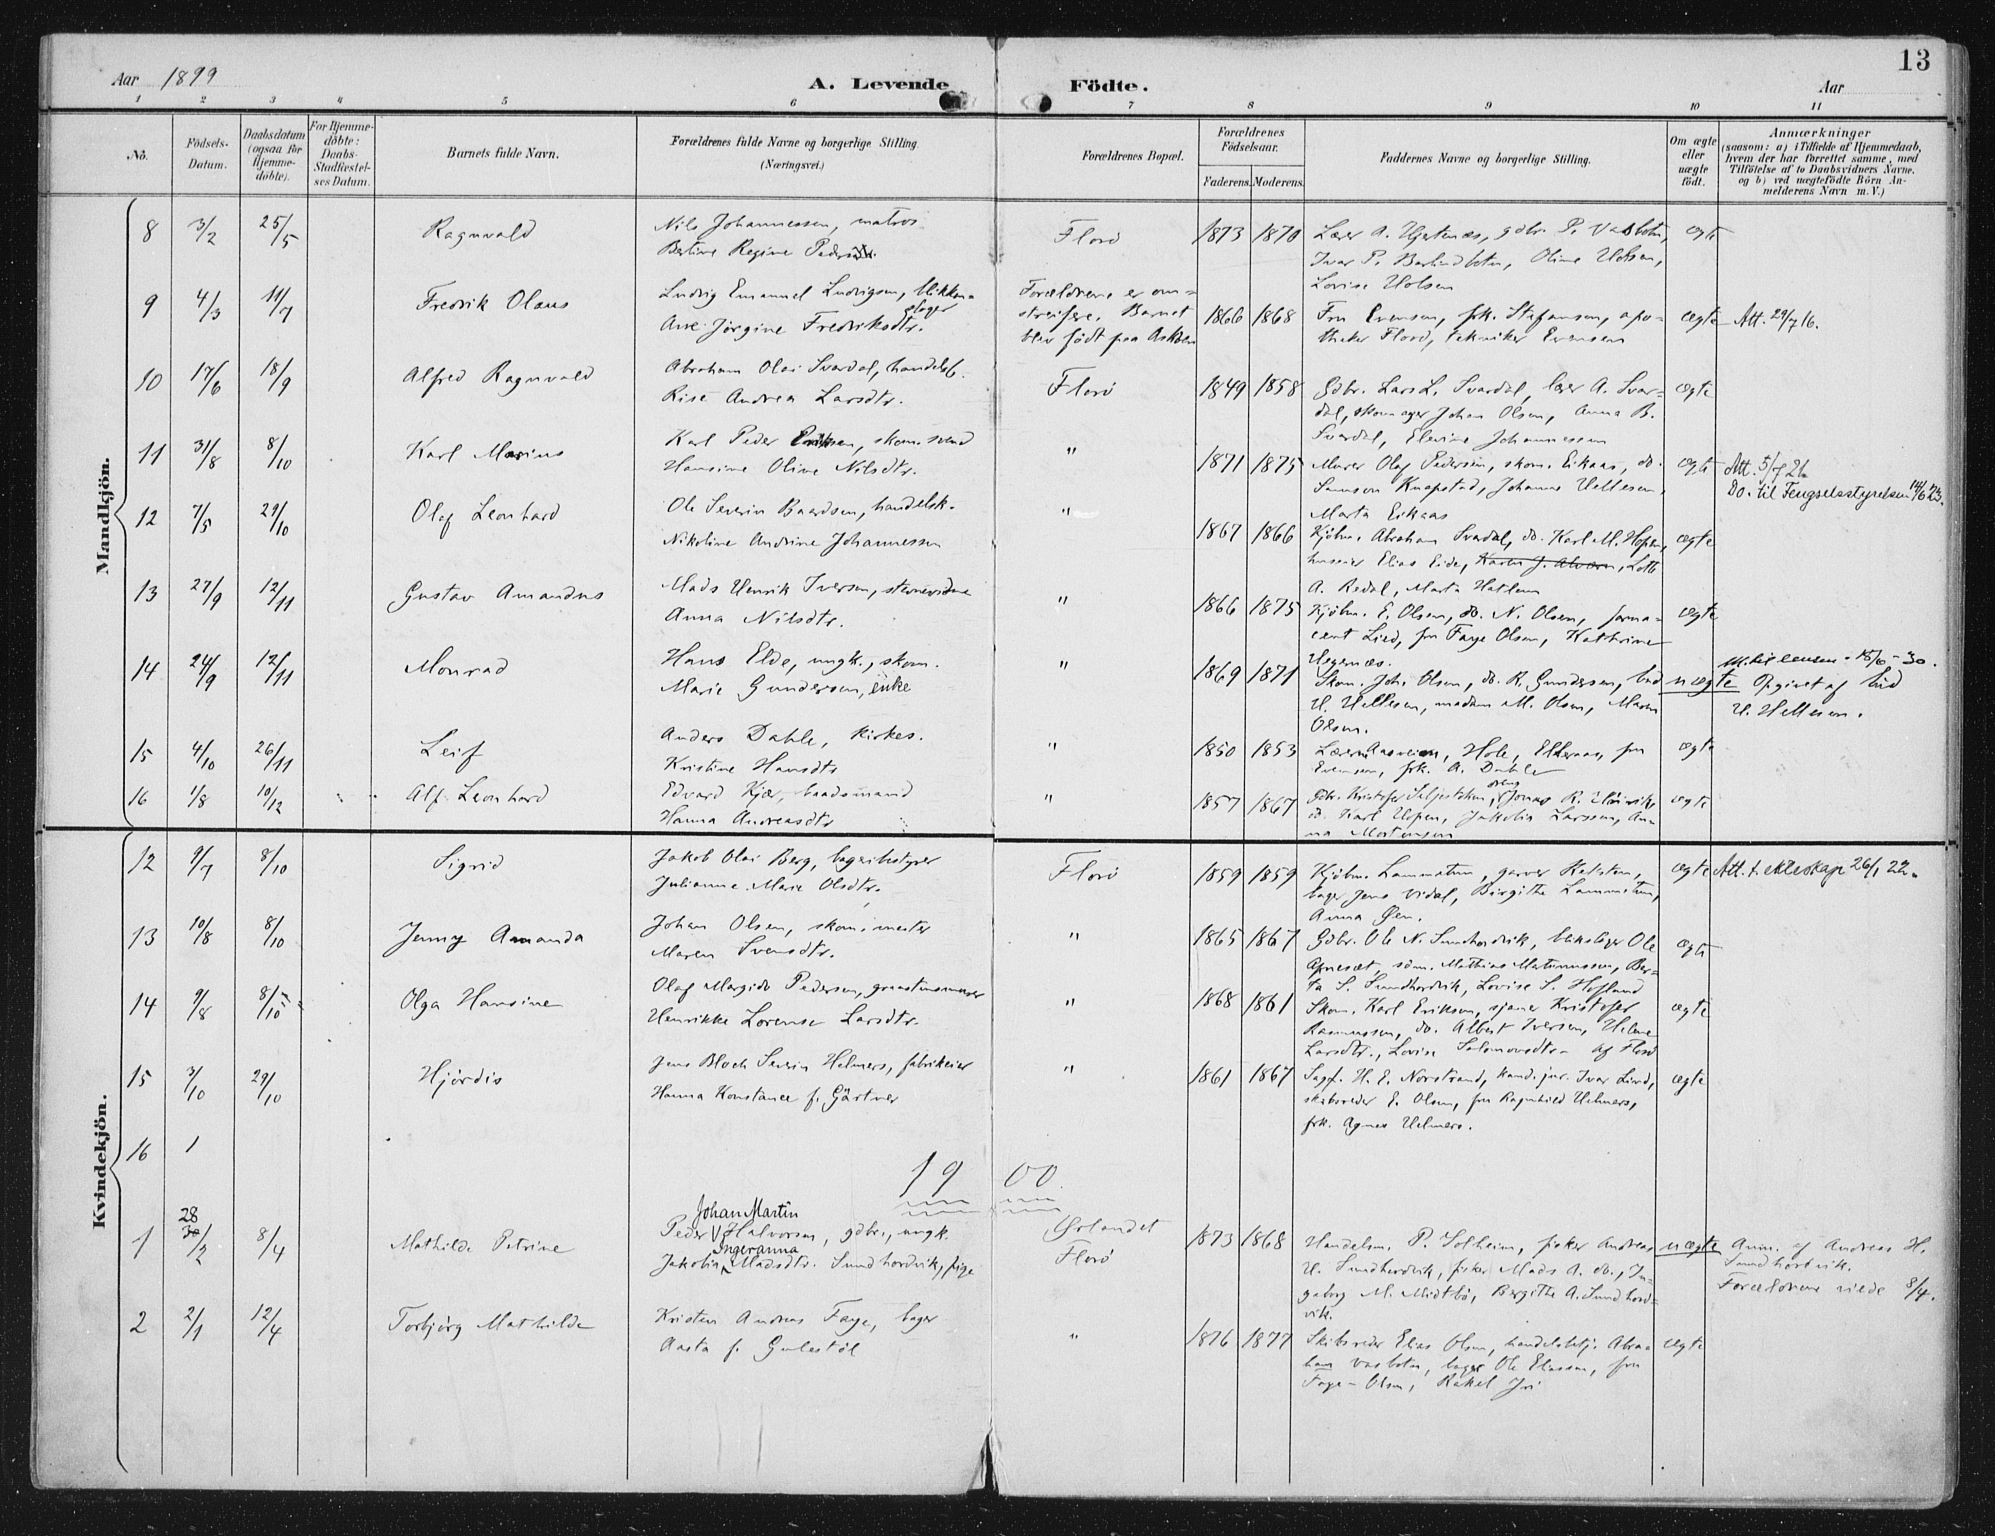 13
Aar 1899
A. Levende Födte.
Aar
1 2 3 4 5 6 7 8 9 10 11
No.
Födsels-Datum.
Daabsdatum (ogsaa for Hjemme-döbte).
For Hjemme-döbte: Daabs-Stadfæstel-ses Datum.
Barnets fulde Navn.
Forældrenes fulde Navne og borgerlige Stilling. (Næringsvei.)
Forældrenes Bopæl.
Forældrenes Födselsaar.
Faderens. Moderens.
Faddernes Navne og borgerlige Stilling.
Om ægte eller uægte födt.
Anmærkninger
(saasom: a) i Tilfælde af Hjemmedaab,
hvem der har forrettet samme, med
Tilföielse af to Daabsvidners Navne.
og b) ved uægtefödte Börn An-
melderens Navn m. V.)
Mandkjön.
8 3/2 25/5 Ragnvald Nils Johannessen, matros Florö 1873 1870 Lærer A. Hjertenæs, gdbr. P. Vasbotn, ægte
Bertine Regine Ivar P. Barlindbotn, Oline Holsen,
Lovise Holsen
9 4/3 11/7 Fredrik Olaus Ludvig Emanuel Ludvigsen, blikken-
slager Forældrene er om-
Ane Jörgine Fredriksdtr. streifere. Barnet 1866 1868 Fru Evensen, frk. Stefansen, apo- ægte Att. 29/7 16.
blev födt paa Asköen theker Florö, tekniker Evensen
10 17/6 18/9 Alfred Ragnvald Abraham Olai Svardal, handelsf. Florö 1849 1858 Gdbr. Lars L. Svardal, lærer A. Svar- ægte
Rise Andrea Larsdtr. dal, skomager Johan Olsen, Anna B.
Svardal, Elevine Johannessen
11 31/8 8/10 Karl Marius Karl Peder Eriksen, skom. svend " 1871 1875 Murer Olaf Pedersen, skom. Eikaas, do. ægte Att. 5/7 21
Hansine Oline Nilsdtr. Samson Knapstad, Johanne Hellesen, Do. til Fengselsstyrelsen 14/6 23.
Marta Eikaas
12 7/5 29/10 Olaf Leonhard Ole Severin Baardsen, handelsk. " 1867 1866 Kjöbm. Abraham Svardal, do. Karl M. Hopen, ægte
Nikoline Andrine Johannessen husmier Elias Eide, Karen J. Alværn, Lotte
A. Redal, Marta Hatlem
13 27/9 12/11 Gustav Amandus Mads Henrik Iversen, " 1866 1875 Kjöbm. E. Olsen, do. N. Olsen, ægte
Anna Nilsdtr. Lied, fru Faye Olsen, Kathrine
Hegernæs.
14 24/9 12/11 Monrad Hans Elde, ungk., skom. " 1869 1871 Skom. Joh. Olsen, do. R. Gundersen, bud uægte Opgivet af bud
Marie Gundersen, enke H. Hellesen, madam M. Olsen, Maren H. Hellesen.
Olsen.
15 4/10 26/11 Leif Anders Dahle, kirkes. " 1850 1853 Hole, fru ægte
Kristine Hansdtr Evensen, frk. A. Dahle
16 1/8 10/12 Alf Leonhard Edvard Kjær, baadsmand " 1857 1867 Jonas R. ægte
Hanna Andreasdtr do. Karl Hopen, Jakobia Larssen, An-
na Mortensen
Kvindekjön.
12 9/7 8/10 Sigrid Jakob Olai Berg, bageribestyrer Florö 1859 1859 Kjöbm. Lammetun, garver Kalstun, ægte Att. t. ekteskap 26/1 22.
Julianne Marie Olsdtr. bager Jens Vidal, Birgithe Lammetun,
Anna Öen.
13 10/8 8/10 Jenny Amanda Johan Olsen, skom. mester " 1865 1867 Gdbr. Ole N. Sundhordvik, blikslager Ole ægte
Maren Svensdtr. Apnesæt, söm. Mathias Martinussen, Ber-
ta S. Sundhordvik, Lovise S. Hofland
14 9/8 8/10 Olga Hansine Olaf Margido Pedersen, graastensmurer " 1868 1861 Skom. Karl Eriksen, Kristofer ægte
Henrikke Lorense Larsdtr. Rasmussen, do. Albert Iversen, Helene
Larsdtr., Lovise Salomonsdtr. af Florö
15 3/10 29/10 Hjördis Jens Bloch Severin Helmers, fabrikeier " 1861 1867 Sagf. H. E. Norstrand, kand. jur. Ivar Lied, ægte
Hanna Konstance f. Gärtner skibsreder E. Olsen, fru Ragnhild Helmers,
frk. Agnes Helmers.
16 1
1900
1 28/2 8/4 Mathilde Petrine Peder Johan Martin Halvorsen, gdbr., ungk. Örlandet 1873 1868 Handelsm. P. Solheim, fisker Andreas uægte Anm. af Andreas H.
Jakobia Ingeranna Madsdtr. Sundhordvik, pige Florö H. Sundhordvik, fisker Mads A. do., In- Sundhordvik.
geborg M. Midtbö, Bergithe A. Sundhord- Forældrene viede 8/4.
vik.
2 2/1 12/4 Torbjörg Mathilde Kristen Andreas Faye, bager " 1876 1877 Skibsreder Elias Olsen, handelsbetj. Abra- ægte
Aasta f. Gulestöl ham Vasbotn, bager Ole Eliassen, fru
Faye-Olsen, Rakel